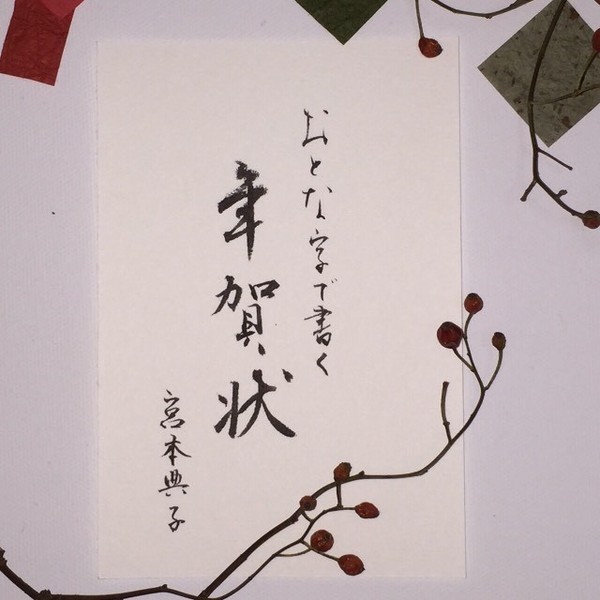 おとな字で書く
年賀状
宮本典子